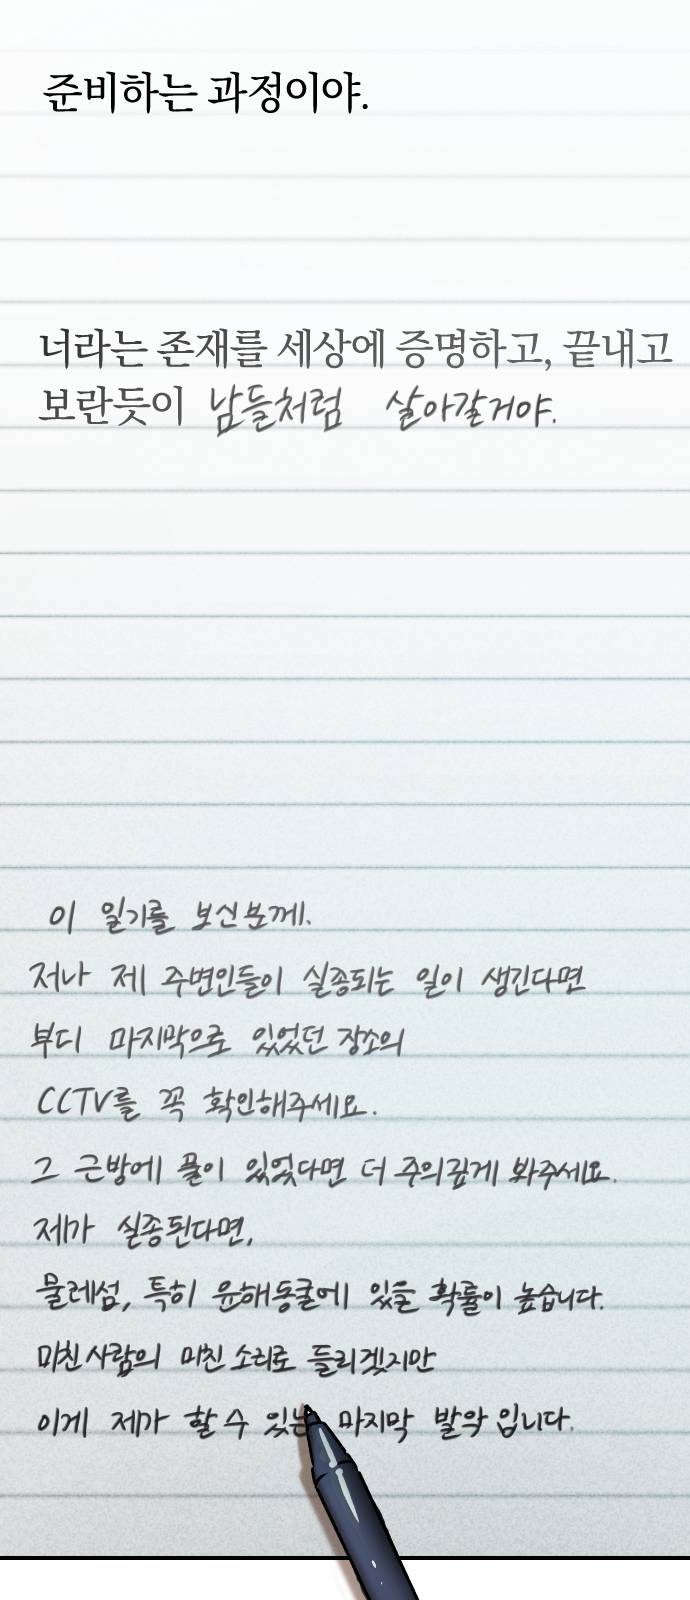 준비하는 과정이야.
너라는 존재를 세상에 증명하고, 끝내고
보란듯이 남들처럼 살아갈거야.
이 일기를 보신분께.
저나 제 주변인들이 실종되는 일이 생긴다면
부디 마지막으로 있었던 장소의
CCTV를 꼭 확인해주세요.
그 근방에 풀이 있었다면 더 주의깊게 봐주세요.
제가 실종된다면,
물레섬, 특히 윤해동굴에 있을 확률이 높습니다.
미친사람의 미친소리로 들리겠지만
이게 제가 할 수 있는 마지막 발악입니다.